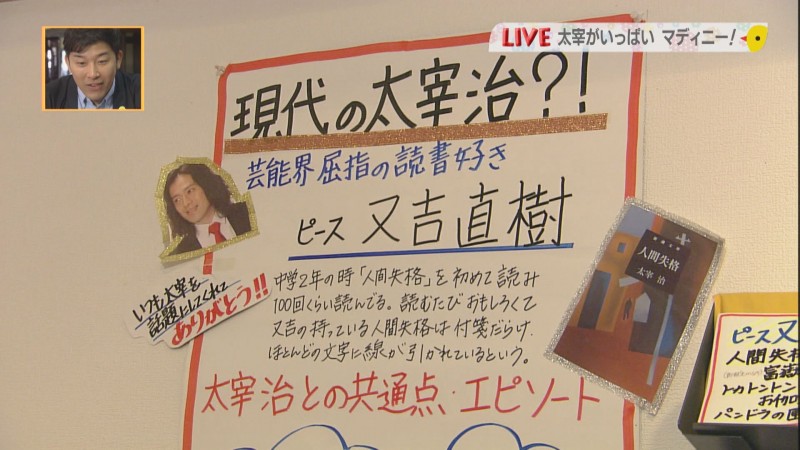 LIVE 太宰がいっぱい マディニー!
現代の太宰治?!
芸能界屈指の読書好き
ピース 又吉直樹
中学2年の時「人間失格」を初めて読み
100回くらい読んでる。読むたびおもしろくて
又吉の持っている人間失格は付箋だらけ。
ほとんどの文字に線が引かれているという。
太宰治との共通点・エピソート
いつも太宰を
話題にしてくれて
ありがとう!!
人間失格
太宰 治
ピース又
人間失格
富嶽
トカトントン
パンドラの匣